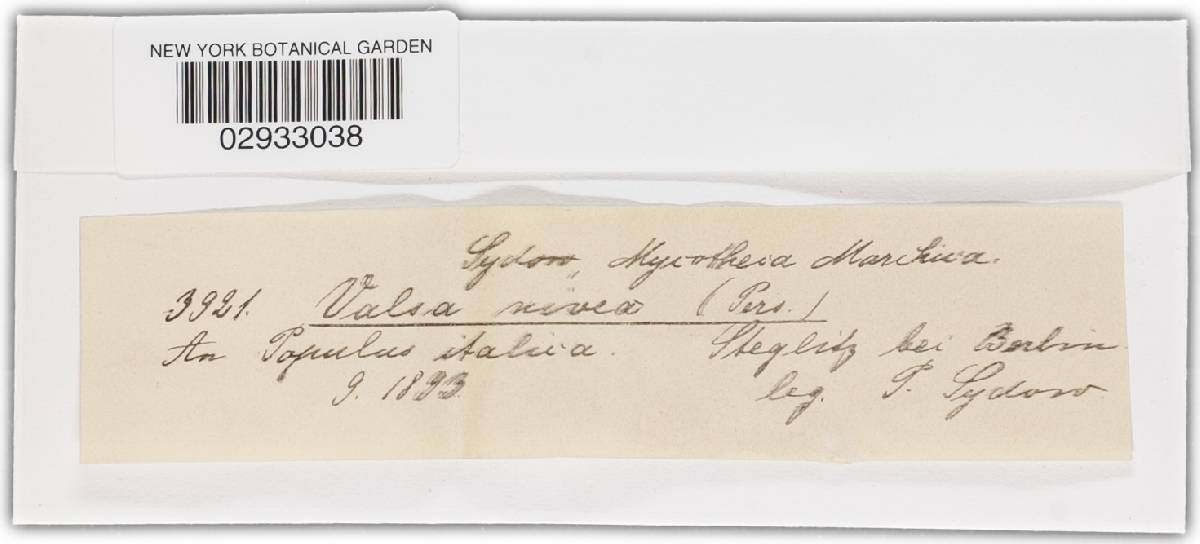 NEW YORK BOTANICAL GARDEN
02933038
Sydow, Mycotheca Marchica.
3921. Valsa nivea (Pers.)
An Populus italica. Steglitz bei Berlin.
9. 1893. leg. P. Sydow